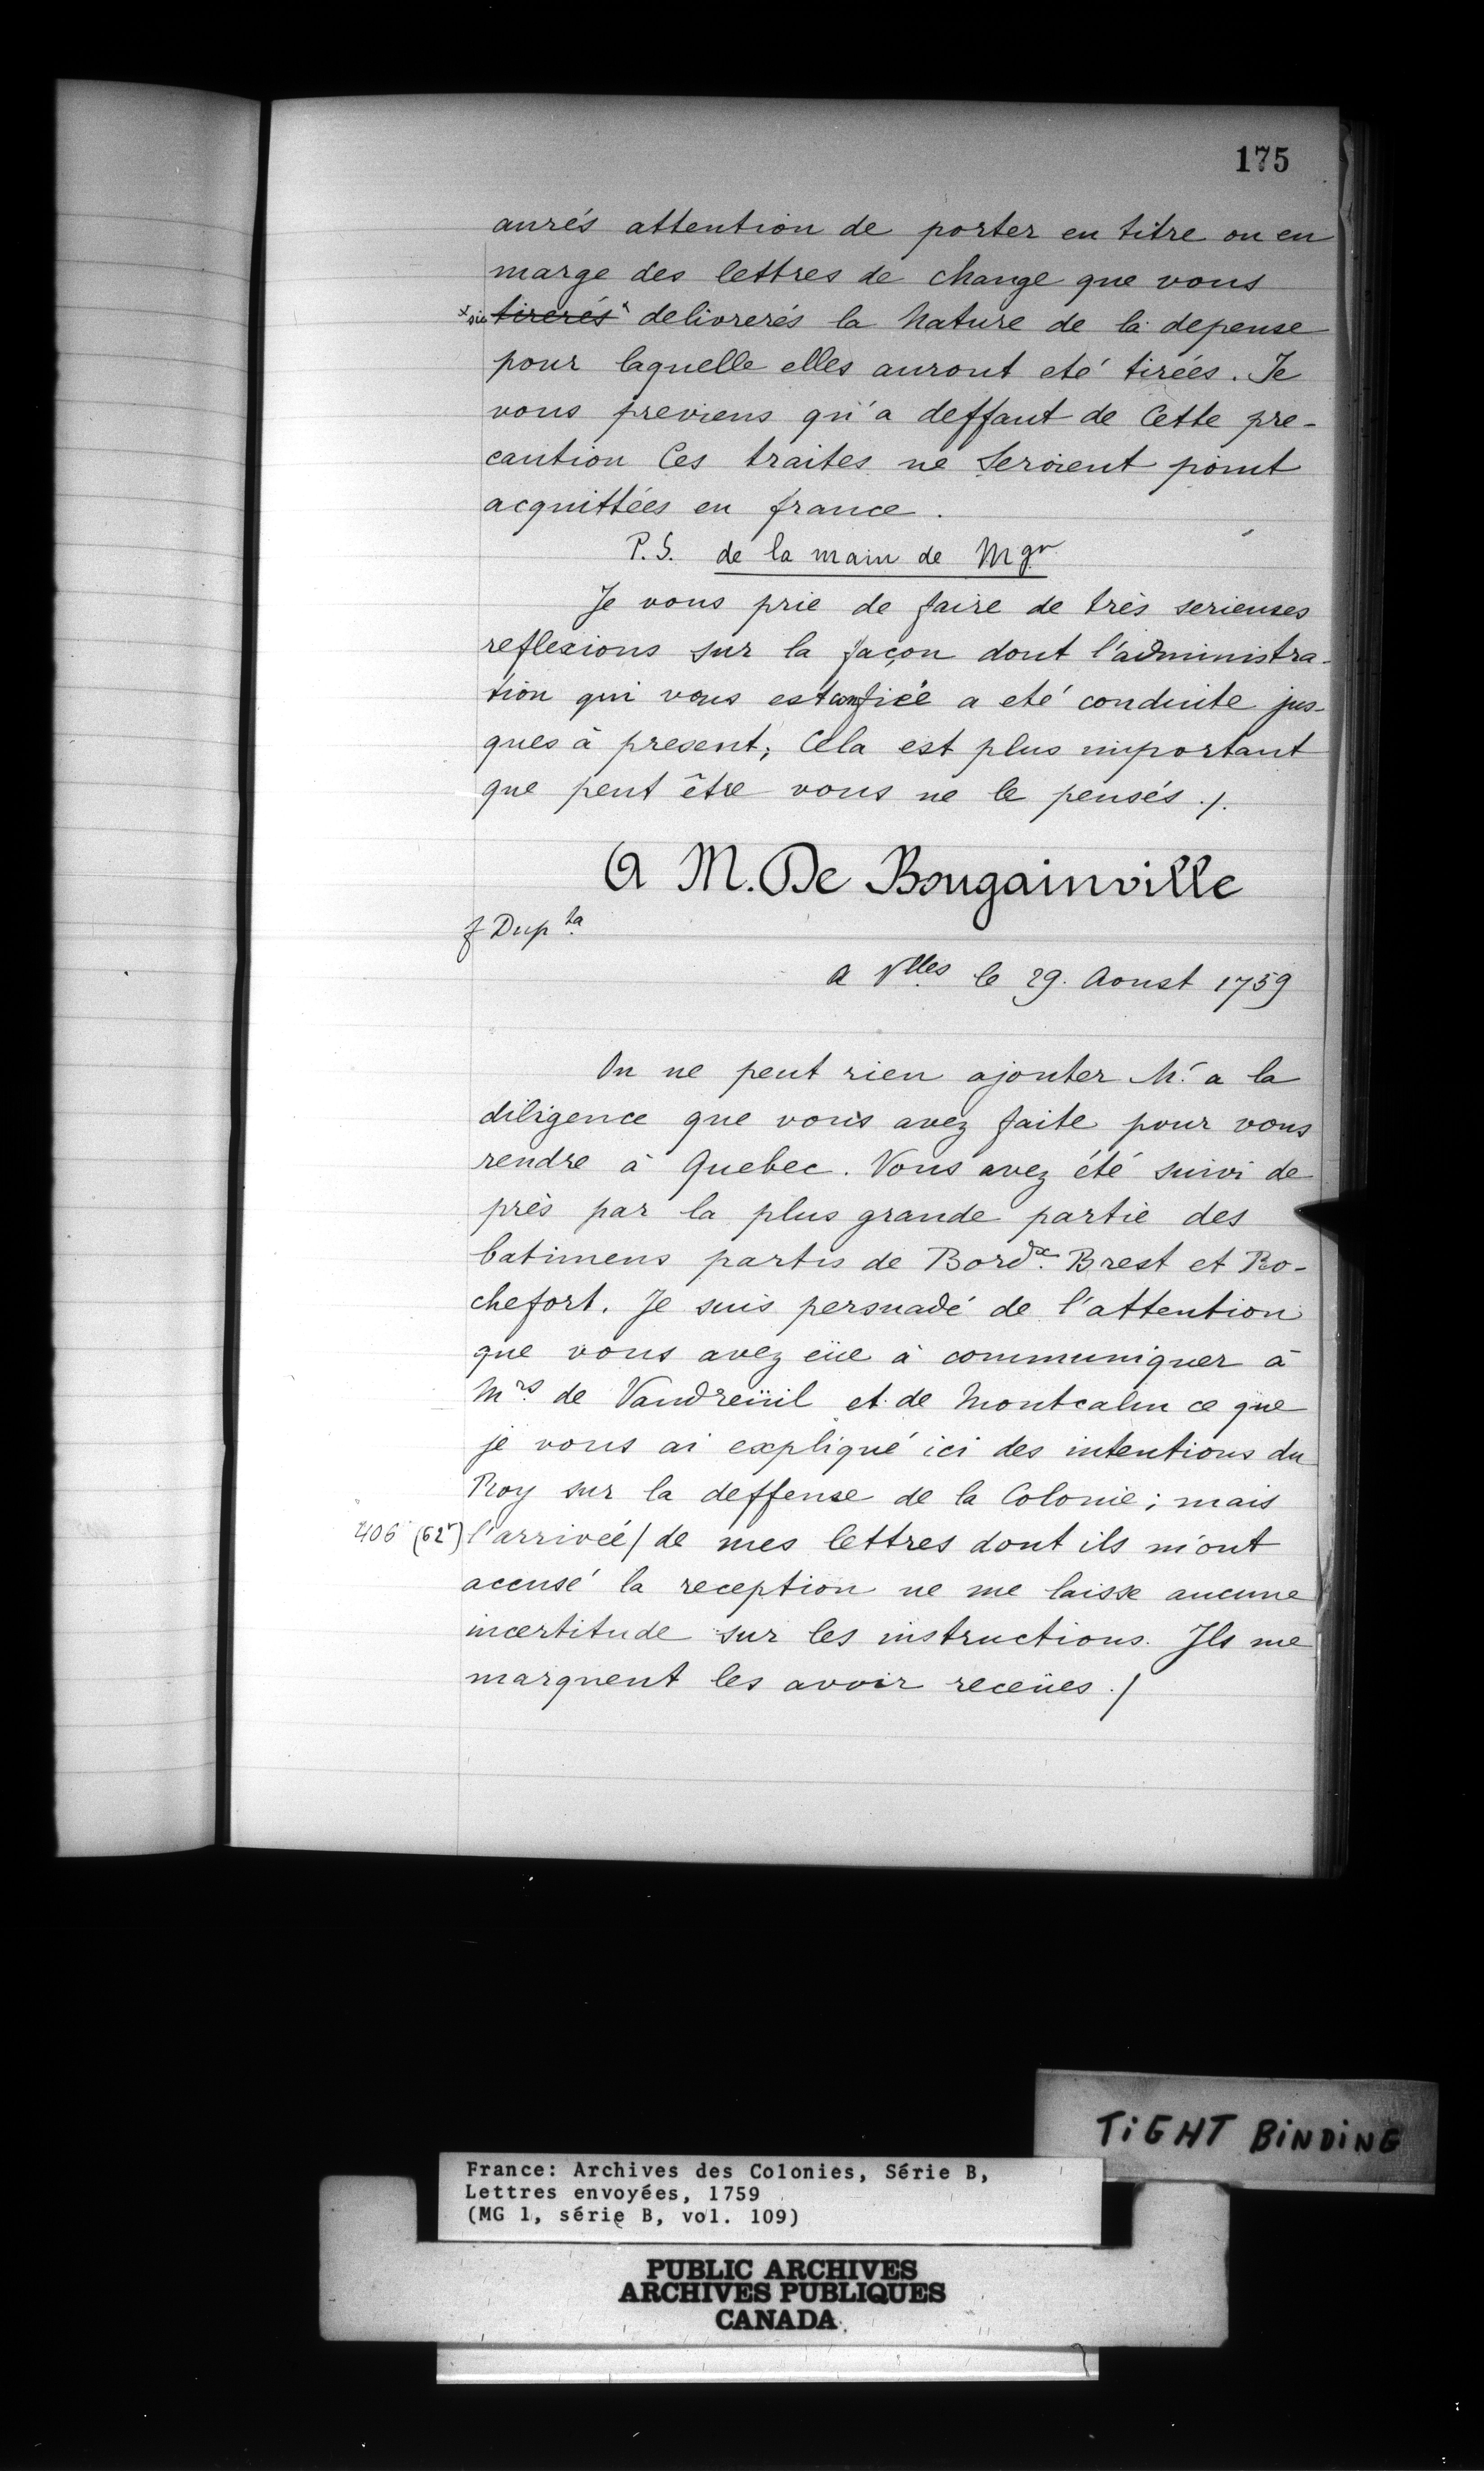 175
aurés attention de porter en titre ou en
marge des lettres de change que vous
x sic tirerés x delivrerés la Nature de la depense
pour laquelle elles auront eté tirées. Je
vous previens qu'a deffaut de Cette pre-
caution Ces traites ne Seroient point
acquittées en france.
P.S. de la main de Mgr
Je vous prie de faire de très serieuses
reflexions sur la façon dont l'administra-
tion qui vous est confiée a eté conduite jus-
ques à present; Cela est plus important
que peut être vous ne le pensés ./.
A M. De Bougainville
f Dup ta
a Vlles le 29. Aoust 1759
On ne peut rien ajouter M. a la
diligence que vous avez faite pour vous
rendre à Quebec. Vous avez été suivi de
près par la plus grande partie des
batimens partis de Bordx. Brest et Ro-
chefort. Je suis persuadé de l'attention
que vous avez eüe à communiquer à
Mrs de Vaudreüil et de Montcalm ce que
je vous ai expliqué ici des intentions du
Roy sur la deffense de la Colonie; mais
406 (62r) l'arrivée/de mes lettres dont ils m'ont
accusé la reception ne me laisse aucune
incertitude sur les instructions. Ils me
marquent les avoir receües ./
TiGHT BiNDiNG
France: Archives des Colonies, Série B,
Lettres envoyées, 1759
(MG 1, série B, vol. 109)
PUBLIC ARCHIVES
ARCHIVES PUBLIQUES
CANADA